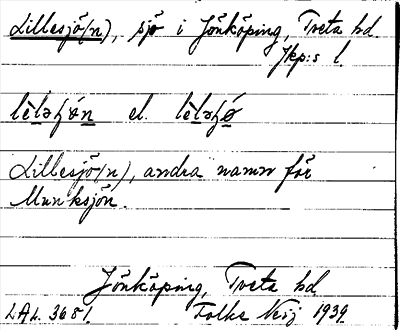 Lillesjö(n), sjö i Jönköping, Tveta hd
Jkp:s l.
lèləʃǿn el. lèləʃǿ
Lillesjö(n), andra namn för
Munksjön.
Jönköping, Tveta hd
LAL. 3681. Folke 1939.